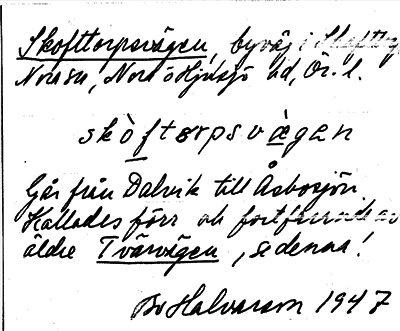 Skofttorpsvägen, byväg i Skofttorp
Norasn, Nora o Hjulsjö hd, Ör. l.
skòftorpsvä̀gen
Går från Dalvik till Åsbosjön.
Kallades förr och fortfarande av
äldre Tvärvägen, se denna!
Bo Halvarson 1947